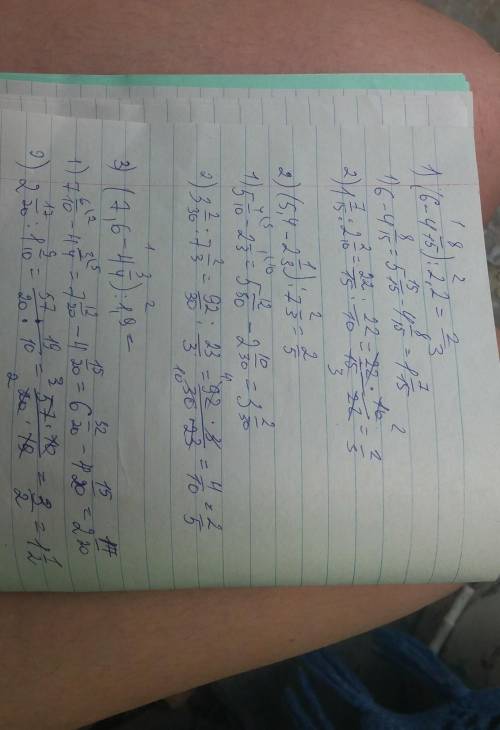 1) (6 - 4 8/15) : 2,2 = 2/3
1) 6 - 4 8/15 = 5 15/15 - 4 8/15 = 1 7/15
2) 1 7/15 : 2 2/10 = 22/15 : 22/10 = 22 · 10 / 15 · 22 = 2/3
2) (5,4 - 2 1/3) : 7 2/3 = 2/5
1) 5 4/10 - 2 1/3 = 5 12/30 - 2 10/30 = 3 2/30
2) 3 2/30 : 7 2/3 = 92/30 : 23/3 = 92 · 3 / 30 · 23 = 4/10 = 2/5
3) (7,6 - 4 3/4) : 1,9 =
1) 7 6/10 - 4 3/4 = 7 12/20 - 4 15/20 = 6 32/20 - 4 15/20 = 2 17/20
2) 2 17/20 : 1 9/10 = 57/20 : 19/10 = 57 · 10 / 20 · 19 = 3/2 = 1 1/2